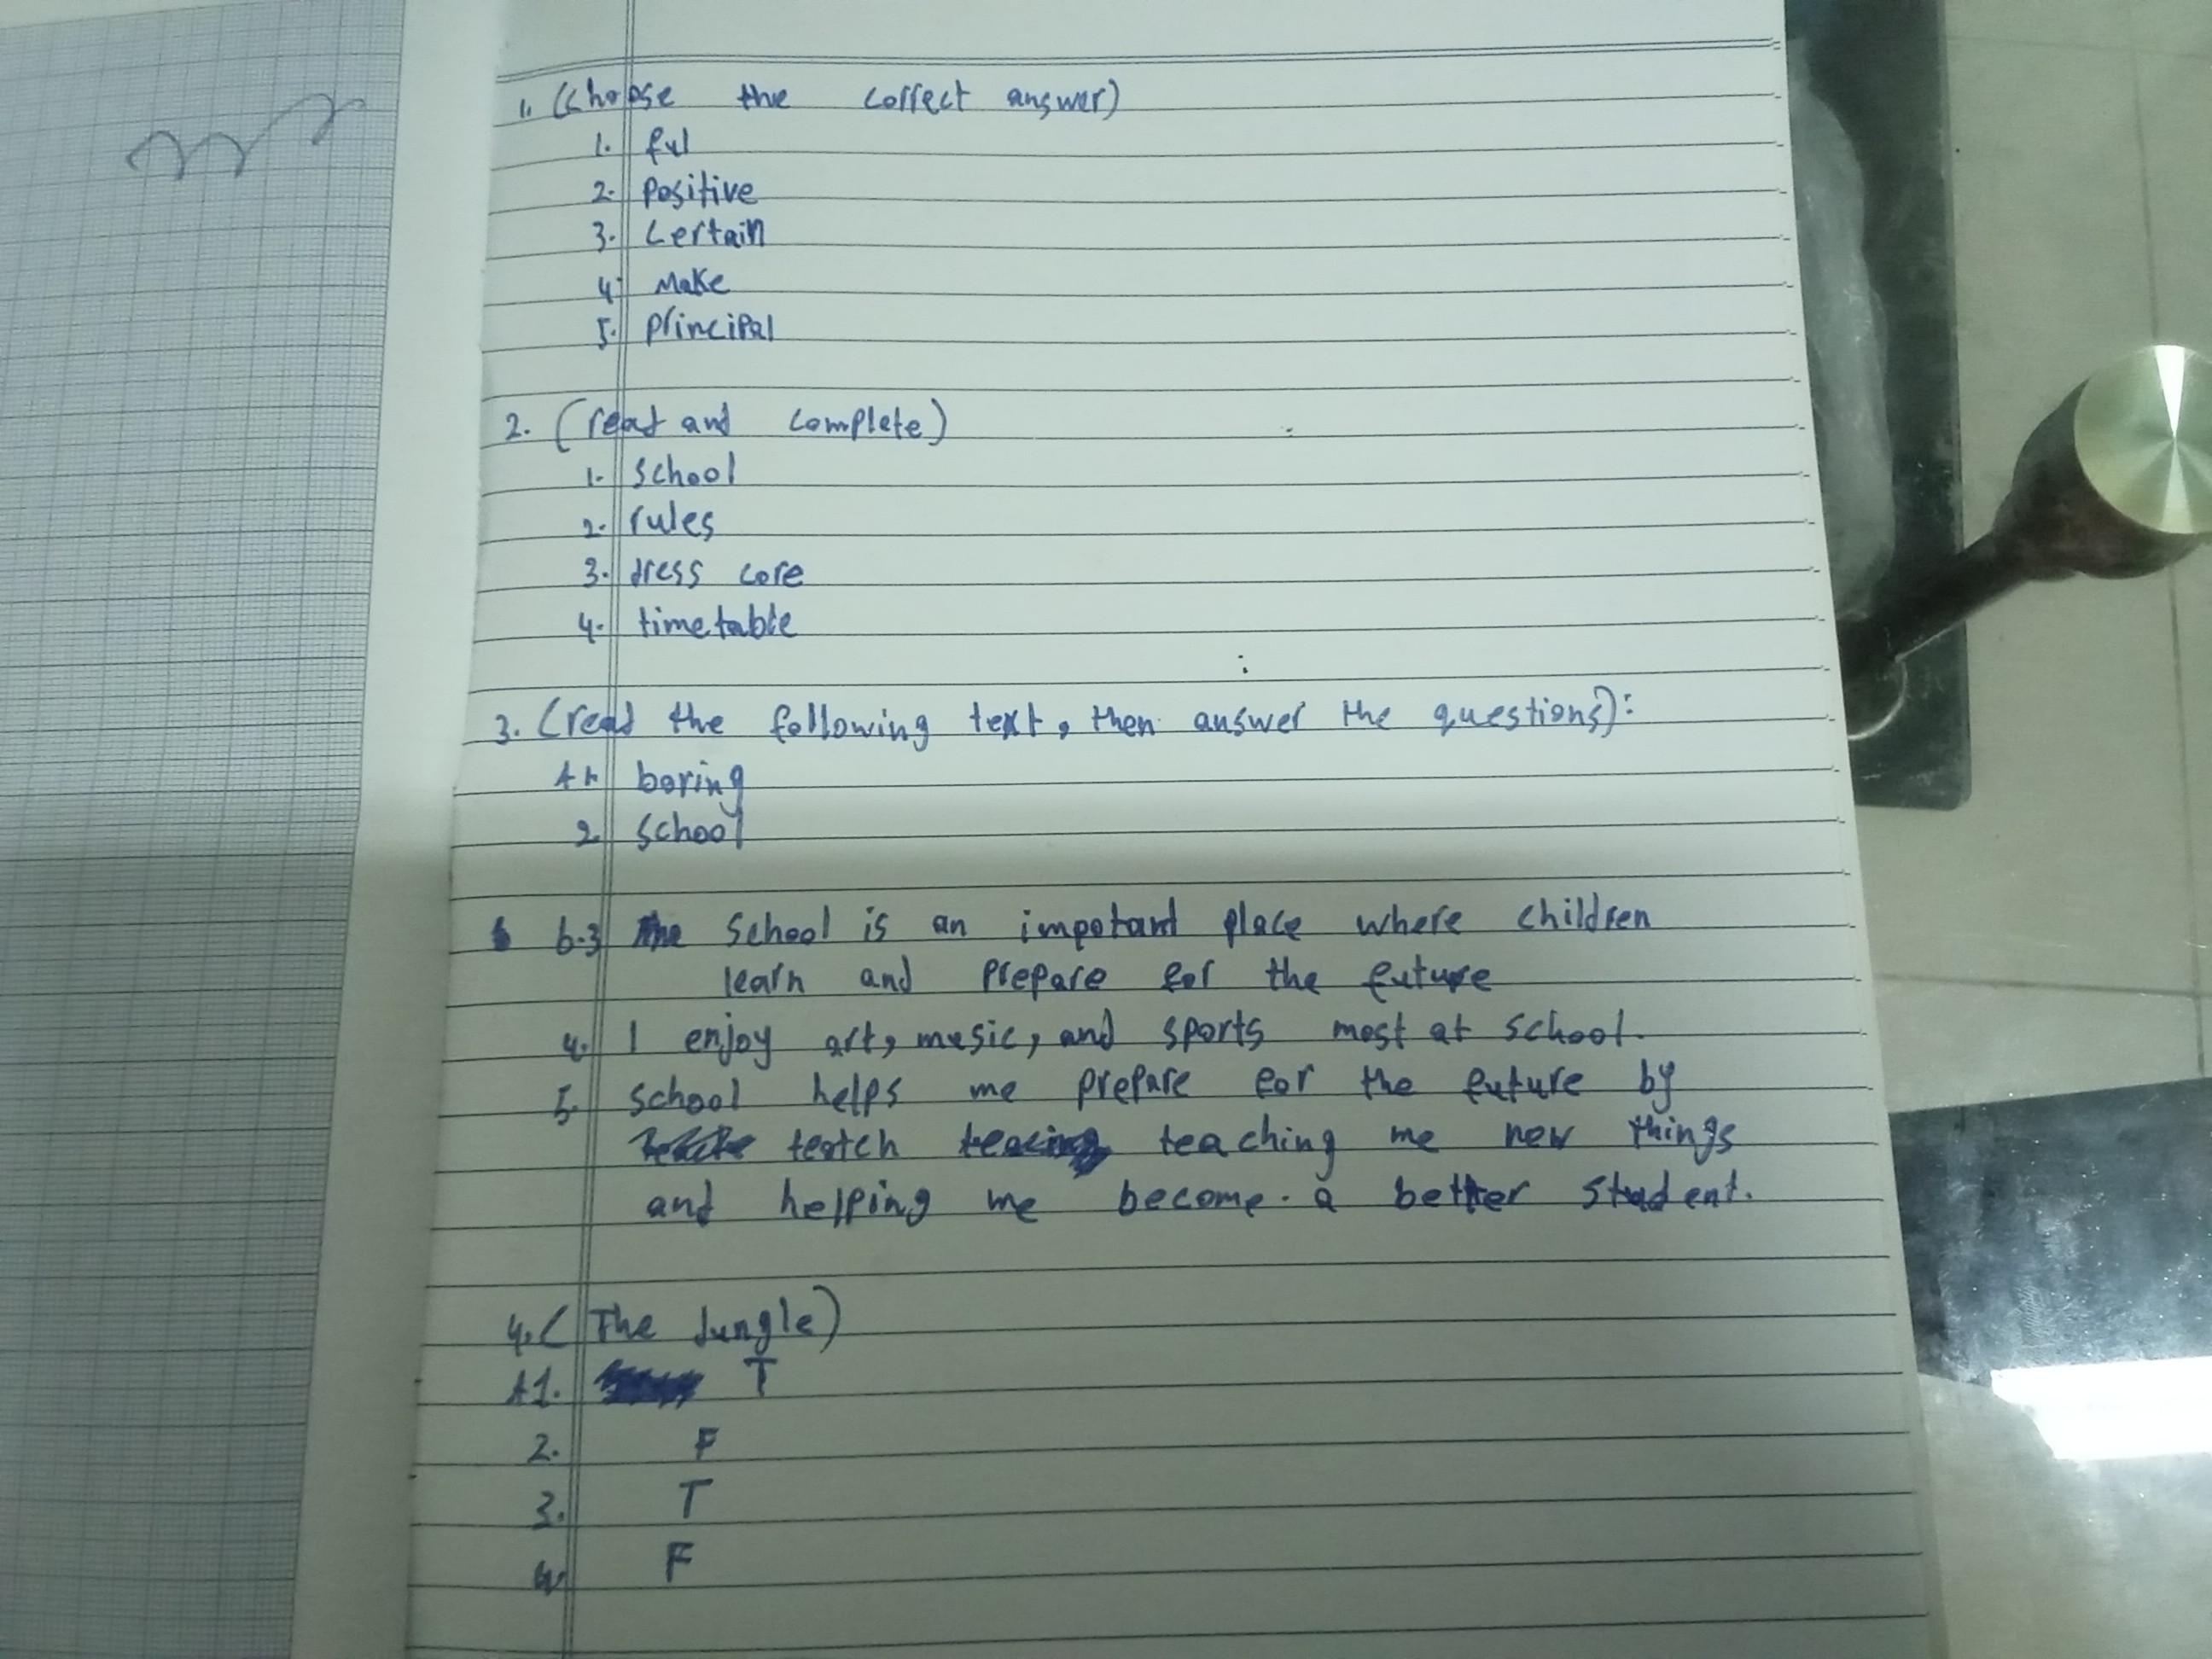 1. (Choose the correct answer)
1. ful
2. Positive
3. Certain
4. Make
5. Principal
2. (read and complete)
1. School
2. rules
3. dress core
4. timetable
3. (read the following text, then answer the questions):
A 1. boring
2. School
b.3 School is an impotant place where children
learn and prepare for the future
4. I enjoy art, music, and sports most at school.
5. School helps me prepare for the future by
teatch teaching me new things
and helping me become a better student.
4. (The Jungle)
A1. T
2. F
3. T
4. F